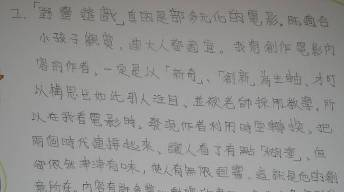 1.「野蠻遊戲」真的是部多元化的電影,所適合
小孩子觀賞,由大人發適宜。我看創作電影內
容的作者,一定是以「新奇」、「創新」為主軸,才可
以構思出如此引人注目,並被老師採用教學,所
以在我看電影時,發現作者利用時空轉換,把
兩個時代連接起來,讓人看了有點「糊塗」,但
卻依然津津有味,使人有無限回響,這就是他的創
意所在。內容有